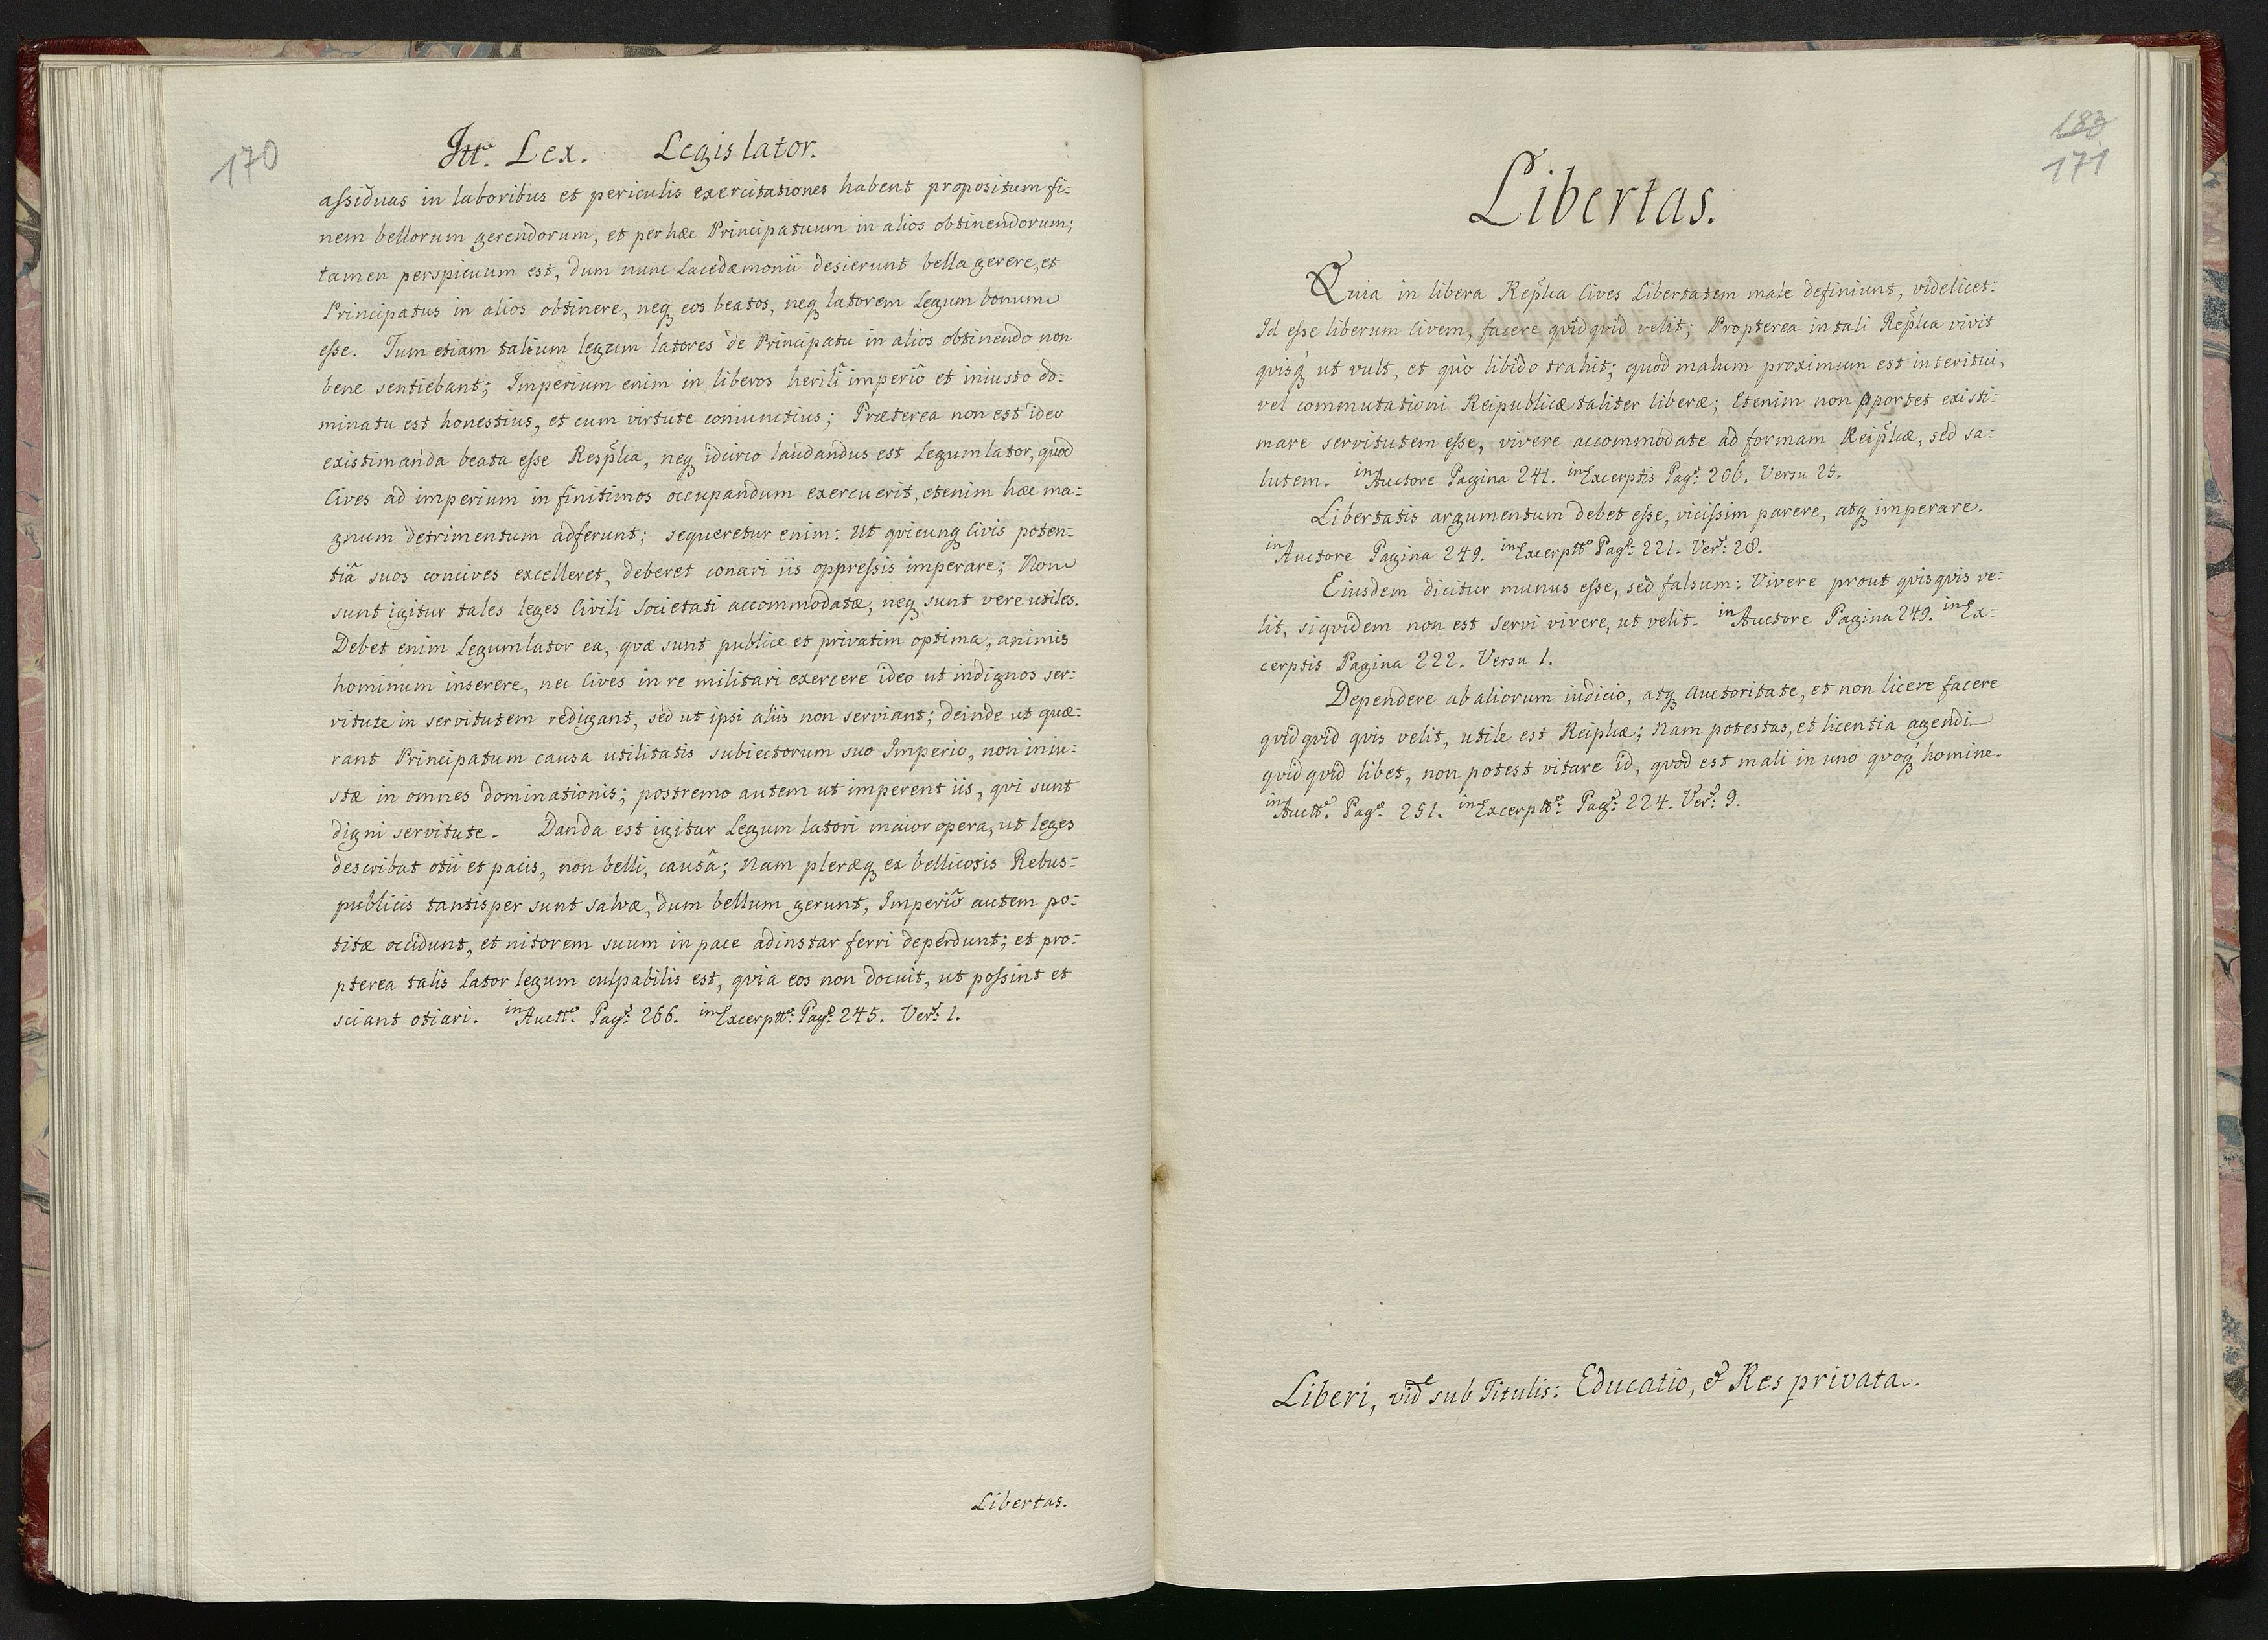 170
Ittº. Lex. Legislator.
assiduas in laboribus et periculis exercitationes habent propositum fi:
nem bellorum gerendorum, et per hæc Principatuum in alios obtinendorum;
tamen perspicuum est, dum nunc Lacedæmonii desierunt bella gerere, et
Principatus in alios obtinere, neq eos beatos, neq latorem Legum bonum
esse. Tum etiam talium legum latores de Principatu in alios obtinendo non
bene sentiebant; Imperium enim in liberos herili imperiô et iniusto do:
minatu est honestius, et cum virtute coniunctius; Præterea non est ideo
existimanda beata esse Resplica, neq idcirco laudandus est Legumlator, quod
Cives ad imperium in finitimos occupandum exercuerit, etenim hæc ma:
gnum detrimentum adferunt; sequeretur enim: Ut qvicunq Civis poten:
tiâ suos concives excelleret, deberet conari iis oppressis imperare; Non
sunt igitur tales leges Civili Societati accommodatæ, neq sunt vere utiles.
Debet enim Legumlator ea, qvæ sunt publice et privatim optima, animis
hominum inserere, nec Cives in re militari exercere ideo ut indignos ser:
vitute in servitutem redigant, sed ut ipsi aliis non serviant; deinde ut quæ:
rant Principatum causa utilitatis subiectorum suo Imperio, non iniu:
stæ in omnes dominationis; postremo autem ut imperent iis, qvi sunt
digni servitute. Danda est igitur Legum latori maior opera, ut leges
describat otii et pacis, non belli, causâ; Nam pleræq ex bellicosis Rebus:
publicis tantisper sunt salvæ, dum bellum gerunt, Imperiô autem po:
titæ occidunt, et nitorem suum in pace adinstar ferri deperdunt; et pro:
pterea talis Lator legum culpabilis est, qvia eos non docuit, ut possint et
sciant otiari. in Auctte. Page: 266. in Excerptte: Page: 245. Vers: 1.
Libertas.
183
171
Libertas.
Quia in libera Replica Cives Libertatem male definiunt, videlicet:
Id esse liberum Civem, facere qvidqvid velit; Propterea in tali Replica vivit
qvisq ut vult, et quò libido trahit; quod malum proximum est interitui,
vel commutationi Reipublicæ taliter liberæ; Etenim non oportet existi:
mare servitutem esse, vivere accommodate ad formam Reiplicæ, sed sa:
lutem. in Auctore Pagina 241. in Excerptis Page: 206. Versu 25.
Libertatis argumentum debet esse, vicissim parere, atq imperare.
in Auctore Pagina 249. in Excerptte Page: 221. Vers: 28.
Eiusdem dicitur munus esse, sed falsum: Vivere prout qvisqvis ve:
lit, siqvidem non est Servi vivere, ut velit. in Auctore Pagina 249. in Ex:
cerptis Pagina 222. Versu 1.
Dependere ab aliorum iudicio, atq Auctoritate, et non licere facere
qvidqvid qvis velit, utile est Reiplicæ; Nam potestas, et licentia agendi
qvidqvid libet, non potest vitare id, qvod est mali in uno qvoq homine.
in Auctte. Page. 251. in Excerptte: Page: 224. Vers: 9.
Liberi, vide sub Titulis: Educatio, & Res privata.